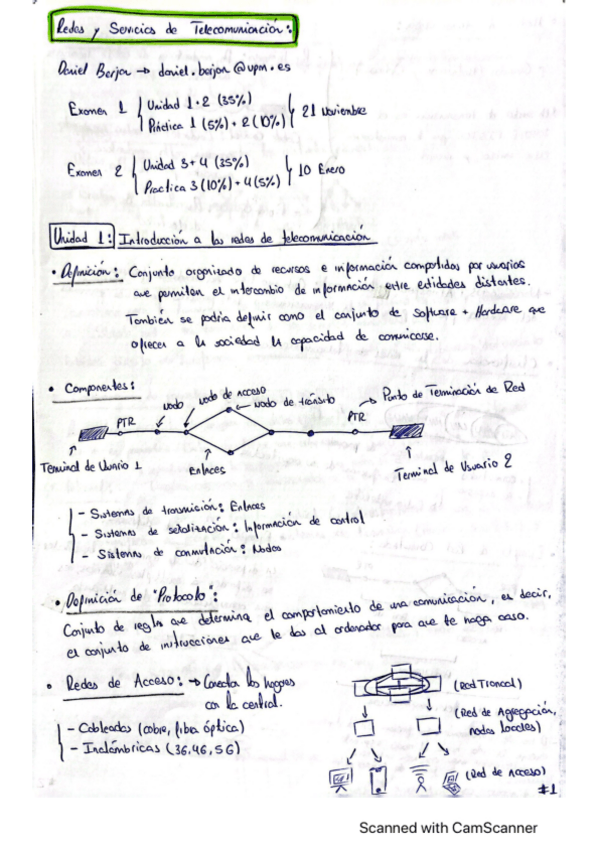 Redes y Servicios de Telecomunicación:
Daniel Berjon → daniel.berjon@upm.es
Examen 1 Unidad 1+2 (35%)
Práctica 1 (5%) + 2 (10%) 21 Noviembre
Examen 2 Unidad 3+4 (35%)
Practica 3 (10%) + 4 (5%) 10 Enero
Unidad 1: Introducción a las redes de telecomunicación
• Definición: Conjunto organizado de recursos e información compartidos por usuarios
que permiten el intercambio de información entre entidades distantes.
También se podria definir como el conjunto de Software + Hardware que
ofrecen a la sociedad la capacidad de comunicarse.
• Componentes:
PTR
nodo
nodo de acceso
nodo de tránsito
PTR
Punto de Terminación de Red
Terminal de Usuario 1
Enlaces
Terminal de Usuario 2
- Sistemas de transmisión: Enlaces
- Sistemas de señalización: Información de control
- Sistemas de conmutación: Nodos
• Definición de "Protocolo":
Conjunto de reglas que determina el comportamiento de una comunicación, es decir,
el conjunto de instrucciones que le das al ordenador para que te haga caso.
• Redes de Acceso: → Conecta los hogares
con la central.
- Cableadas (cobre, fibra óptica)
- Inalámbricas (3G, 4G, 5G)
(Red Troncal)
(Red de Agregación,
nodos locales)
(Red de Acceso)
#1
Scanned with CamScanner